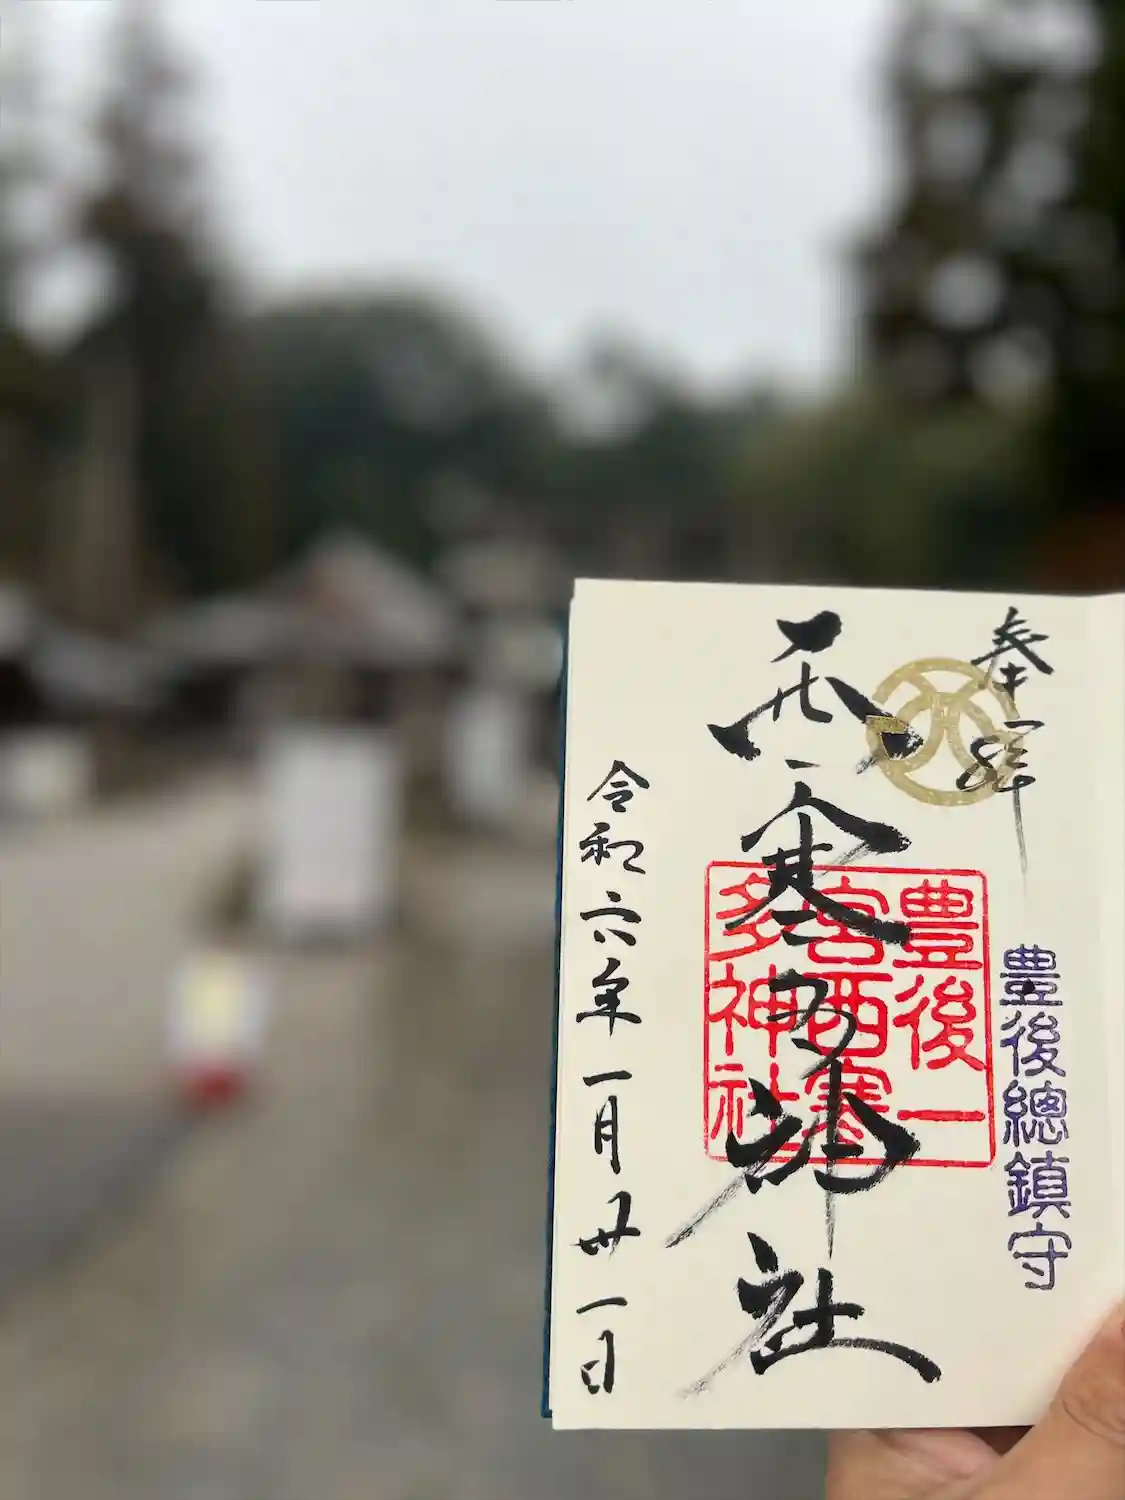 奉拝
豊後總鎮守
西寒多神社
豊後一
宮西寒
多神社
令和六年一月卅一日